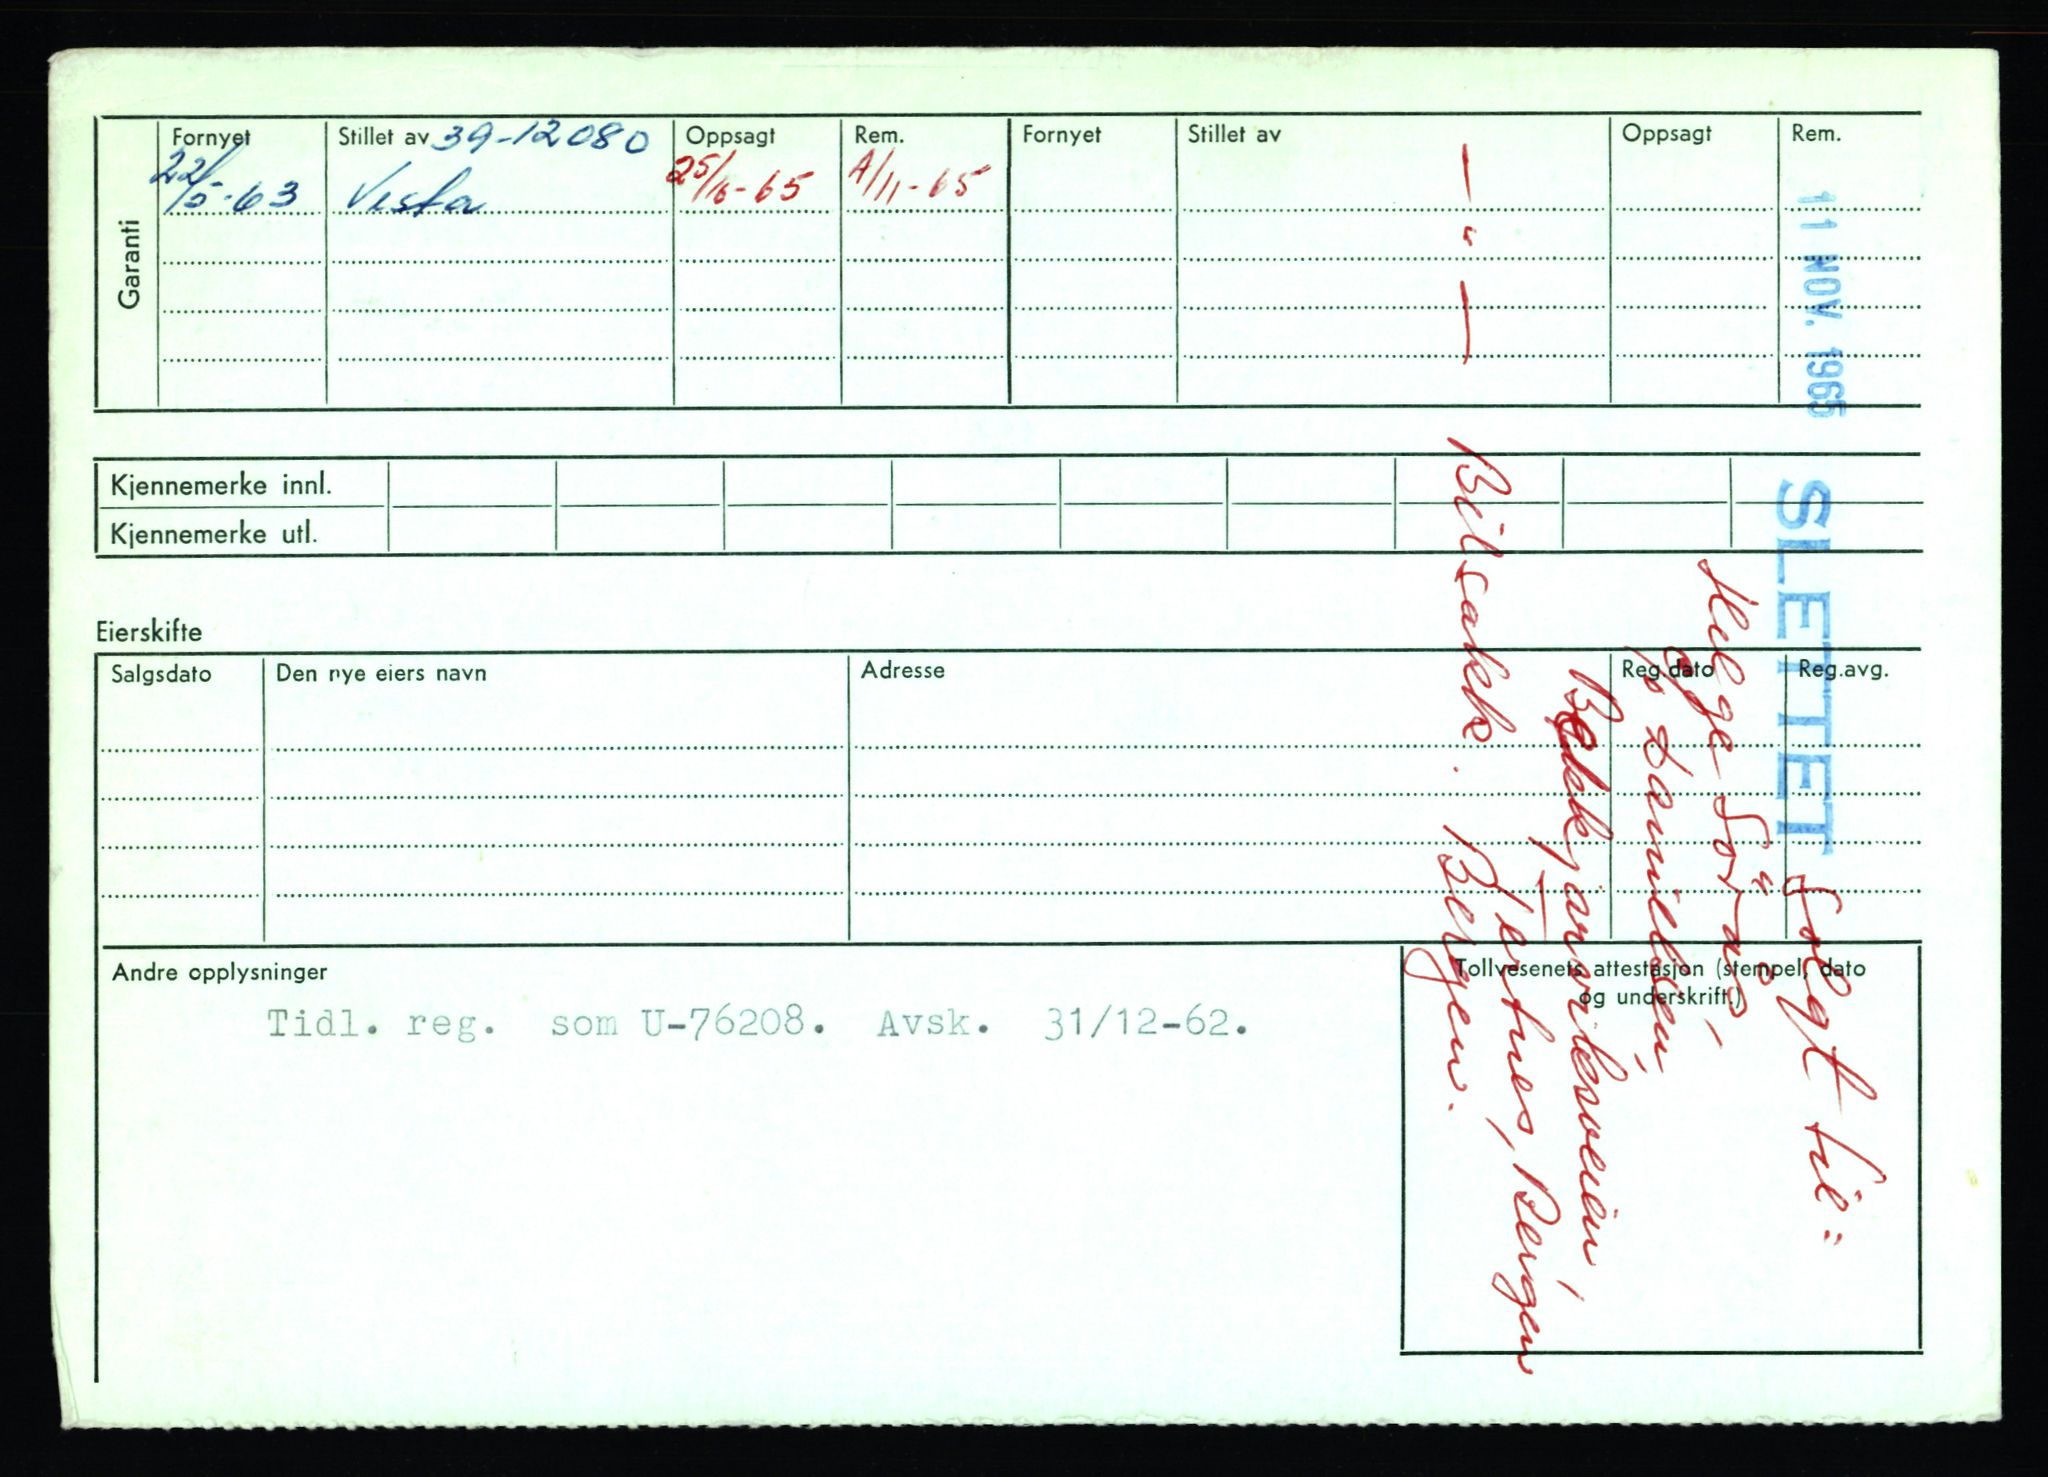 Garanti
Fornyet Stillet av 39-12080 Oppsagt Rem. Fornyet Stillet av Oppsagt Rem.
22/5-63 Vesta 25/10-65 4/11-65
Kjennemerke innl.
Kjennemerke utl.
Eierskifte
Salgsdato Den nye eiers navn Adresse Reg.dato Reg.avg.
Andre opplysninger
Tidl. reg. som U-76208. Avsk. 31/12-62.
Tollvesenets attestasjon (stempel, dato
og underskrift.)
11 NOV. 1965 SLETTET
Solgt til:
Helge Sörås,
c/o Danielsen,
Bekkjarvikveien,
Bergen
— " — Bilsakk. Bergen.